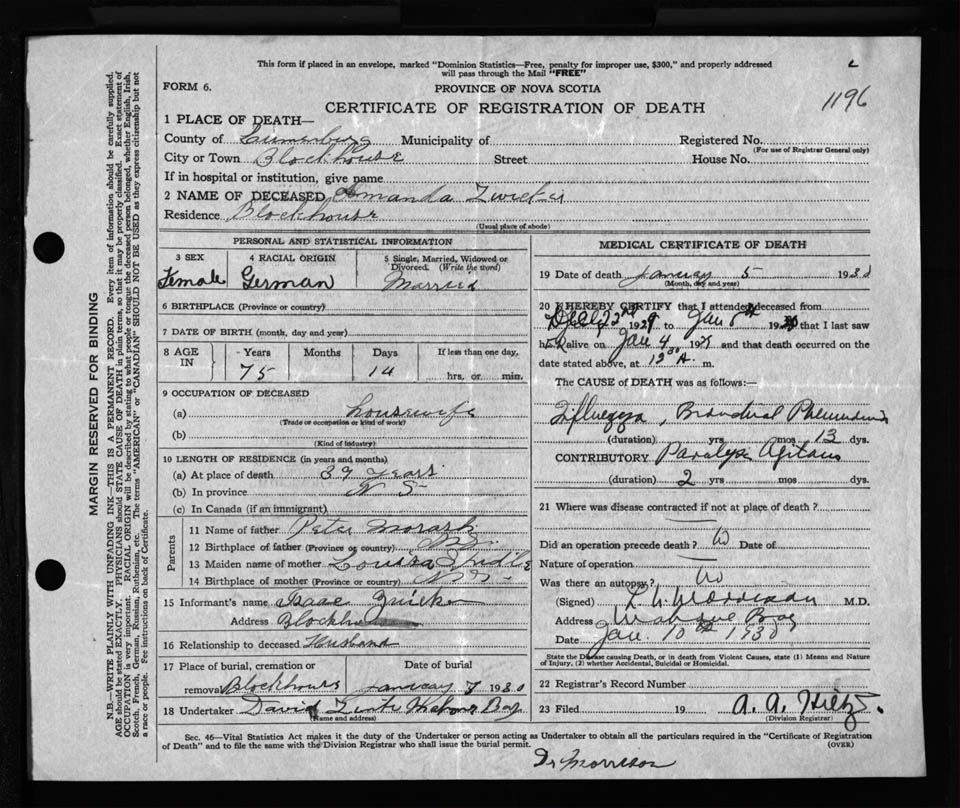 This form if placed in an envelope, marked "Dominion Statistics—Free, penalty for improper use, $300," and properly addressed
will pass through the Mail "FREE"
FORM 6.
PROVINCE OF NOVA SCOTIA
1196
CERTIFICATE OF REGISTRATION OF DEATH
1 PLACE OF DEATH—
County of Lunenburg Municipality of Registered No.
(For use of Registrar General only)
City or Town Blockhouse Street House No.
If in hospital or institution, give name
2 NAME OF DECEASED Amanda Zwicker
Residence Blockhouse
(Usual place of abode)
PERSONAL AND STATISTICAL INFORMATION
3 SEX 4 RACIAL ORIGIN 5 Single, Married, Widowed or Divorced. (Write the word)
Female German Married
6 BIRTHPLACE (Province or country)
7 DATE OF BIRTH (month, day and year)
8 AGE IN Years Months Days If less than one day,
75 14 hrs. or min.
9 OCCUPATION OF DECEASED
(a) housewife
(Trade or occupation or kind of work)
(b)
(Kind of industry)
10 LENGTH OF RESIDENCE (in years and months)
(a) At place of death 39 years
(b) In province N S
(c) In Canada (if an immigrant)
Parents
11 Name of father Peter Morash
12 Birthplace of father (Province or country) N.S.
13 Maiden name of mother Louisa
14 Birthplace of mother (Province or country) N.S.
15 Informant's name Isaac Zwicker
Address Blockhouse
16 Relationship to deceased Husband
17 Place of burial, cremation or Date of burial
removal Blockhouse January 7 1930
18 Undertaker David Mahone Bay
(Name and address)
MEDICAL CERTIFICATE OF DEATH
19 Date of death January 5 1930
(Month, day and year)
20 I HEREBY CERTIFY that I attended deceased from
Dec 22nd 1929 to Jan 5th 1930 that I last saw
her alive on Jan 4 19 and that death occurred on the
date stated above, at 12 30 A. m.
The CAUSE of DEATH was as follows:
Influenza, Bronchial Pneumonia
(duration) yrs mos 13 dys.
CONTRIBUTORY Paralysis Agitans
(duration) 2 yrs mos dys.
21 Where was disease contracted if not at place of death?
Did an operation precede death? No Date of
Nature of operation
Was there an autopsy? No
(Signed) Morrison M.D.
Address Mahone Bay
Date Jan 10th 1930
State the Disease causing Death, or in death from Violent Causes, state (1) Means and Nature
of Injury, (2) whether Accidental, Suicidal or Homicidal.
22 Registrar's Record Number
23 Filed 19 A. A. Hiltz.
(Division Registrar)
Sec. 46—Vital Statistics Act makes it the duty of the Undertaker or person acting as Undertaker to obtain all the particulars required in the "Certificate of Registration
of Death" and to file the same with the Division Registrar who shall issue the burial permit. (OVER)
Dr Morrison
MARGIN RESERVED FOR BINDING
N.B.—WRITE PLAINLY WITH UNFADING INK—THIS IS A PERMANENT RECORD. Every item of information should be carefully supplied.
AGE should be stated EXACTLY. PHYSICIANS should STATE CAUSE OF DEATH in plain terms, so that it may be properly classified. Exact statement of
OCCUPATION is very important. RACIAL ORIGIN will be described by stating to what people or tongue the deceased person belonged, whether English, Irish,
Scotch, French, German, Russian, Ruthenian, etc. The terms "AMERICAN" or "CANADIAN" SHOULD NOT BE USED as they express citizenship but not
a race or people. Fee instructions on back of Certificate.